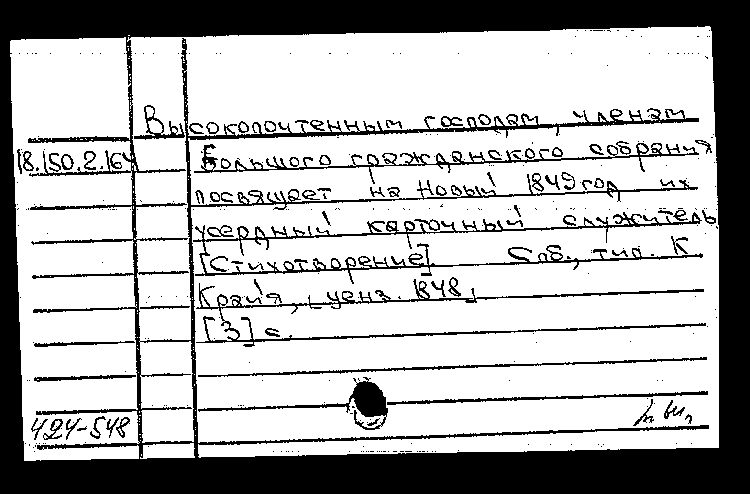 Высокопочтенным господам, членам
18.150.2.164 Большого гражданского собрания
посвящает на Новый 1849 год их
усердный карточный служитель
[Стихотворение]. Спб., тип. К.
Крайя, ценз. 1848.
[3] с.
424-548